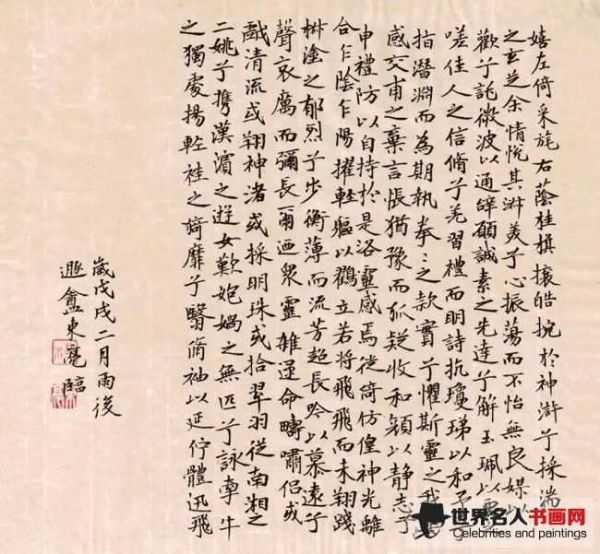 嬉左倚采旄右蔭桂旗攘皓捥於神滸兮採湍
之玄芝余情悅其淑美兮心振蕩而不怡無良媒以
歡兮託微波以通辭願誠素之先達兮解玉珮以要
嗟佳人之信脩兮羌習禮而明詩抗瓊珶以和予兮
指潛淵而為期執拳〻之款實兮懼斯靈之我
感交甫之棄言悵猶豫而狐疑收和顏以靜志兮
申禮防以自持於是洛靈感焉徙倚仿偟神光離
合乍陰乍陽擢輕軀以鶴立若將飛飛而未翔踐
椒塗之郁烈兮步衡薄而流芳超長吟以慕遠兮
聲哀厲而彌長爾迺眾靈雜遝命疇嘯侶或
戲清流或翔神渚或採明珠或拾翠羽從南湘之
二姚兮攜漢濱之遊女歎匏媧之無匹兮詠牽牛
之獨處揚輕袿之猗靡兮翳脩袖以延佇體迅飛
歲戊戌二月雨後
東臨
世界名人书画网
Celebrities and paintings